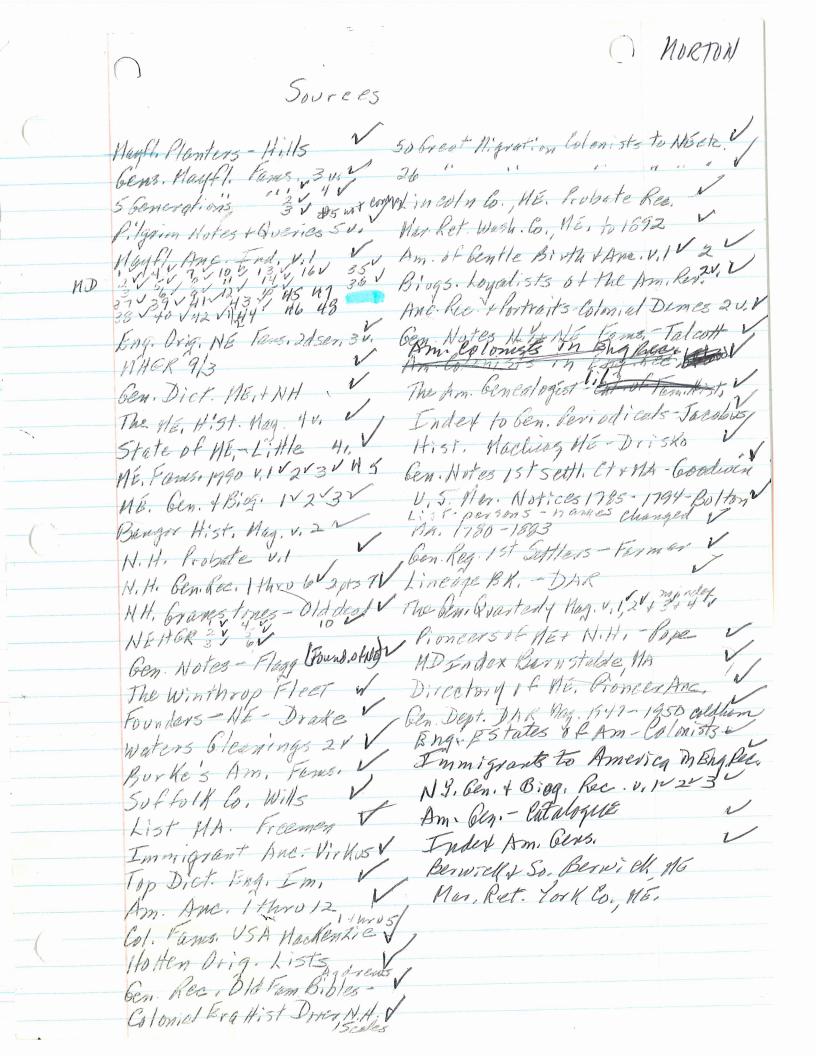 NORTON
Sources
Mayfl. Planters - Hills ✓
Gens. Mayfl. Fams. 3 v. ✓
5 Generations " " 2 ✓ 4 ✓
3 ✓ #5 not
Pilgrim Notes + Queries 5 v. ✓
Mayfl. Anc. Ind. v. 1 ✓
MD 1 ✓ 4 ✓ 7 ✓ 10 ✓ 13 ✓ 16 ✓ 35
36 ✓
37 ✓ 39 ✓ 41 ✓ 43 ✓ 45 47
38 ✓ 40 ✓ 42 ✓ 44 ✓ 46 48
Eng. Orig. NE Fams. 2dser. 3 v. ✓
NHGR 9/3 ✓
Gen. Dict. ME. + NH ✓
The ME. Hist. Mag. 4 v. ✓
State of ME. - Little 4 v. ✓
ME. Fams. 1790 v. 1 ✓ 2 ✓ 3 ✓ #4 5
ME. Gen. + Biog. 1 ✓ 2 ✓ 3 ✓
Bangor Hist. Mag. v. 2 ✓
N.H. Probate v. 1 ✓
N.H. Gen. Rec. 1 thru 6 ✓ 2 pts 7 ✓
NH. Gravestones - Old dead ✓
10 ✓
NEHGR 1 ✓ 4 ✓
2 ✓ 5 ✓
3 ✓ 6 ✓
Gen. Notes - Flagg (Found. of NE) ✓
The Winthrop Fleet ✓
Founders - NE - Drake ✓
Waters Gleanings 2 v ✓
Burke's Am. Fams. ✓
Suffolk Co. Wills ✓
List MA. Freemen ✓
Immigrant Anc. - Virkus ✓
Top Dict. Eng. Im. ✓
Am. Anc. 1 thru 12 ✓
1 thru 5
Col. Fams. USA MacKenzie ✓
Hotten Orig. Lists ✓
Andrews
Gen. Rec. Old Fam Bibles - ✓
Colonial Era Hist Dover N.H. ✓
Scales
50 Great Migration Colonists to NE etc. ✓
26 " " " " " " ✓
Lincoln Co., ME. Probate Rec. ✓
Mar Ret. Wash. Co., ME. to 1892 ✓
Am. of Gentle Birth + Anc. v. 1 ✓ 2 ✓
Biogs. Loyalists of the Am. Rev. 2 v. ✓
Anc. Rec. + Portraits Colonial Dames 2 v. ✓
Gen. Notes N.Y. NE Fams. - Talcott ✓
Am. Colonists in Eng Rec. ✓
The Am. Genealogist - ✓
Index to Gen. Periodicals - Jacobus ✓
Hist. Machias ME - Drisko ✓
Gen. Notes 1st Settl. Ct + MA - Goodwin ✓
U.S. Mar. Notices 1785 - 1794 - Bolton ✓
List persons - names changed ✓
MA. 1780 - 1883
Gen. Reg. 1st Settlers - Farmer ✓
Lineage BK. - DAR ✓
The Gen. Quarterly Mag. v. 1, 2 + 3 + 4 ✓
Pioneers of ME + N.H. - Pope ✓
MD Index Barnstable, MA ✓
Directory of ME. Pioneer Anc. ✓
Gen. Dept. DAR Mag. 1947 - 1950 ✓
Coldham
Eng. Estates of Am - Colonists ✓
Immigrants to America in Eng Rec. ✓
NY. Gen. + Biog. Rec. v. 1 ✓ 2 ✓ 3 ✓
Am. Gen. - Catalogue ✓
Index Am. Gens. ✓
Berwick + So. Berwick, ME
Mar. Ret. York Co., ME.